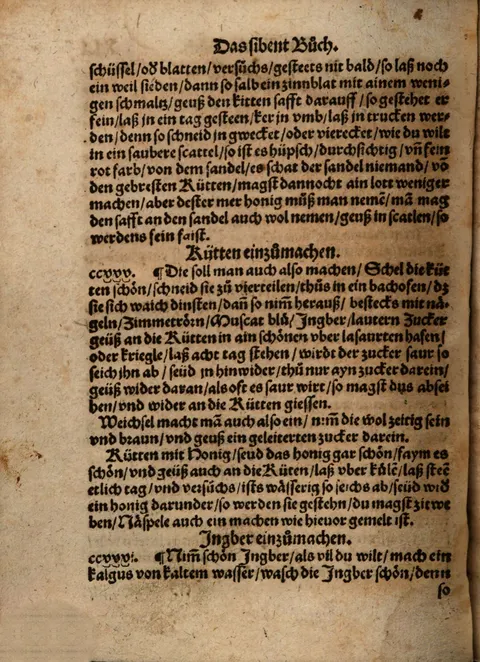 Das sibent Buͦch.
schüssel/od̃ blatten/versuͦchs/gesteets nit bald/so laß noch
ein weil sieden/dann so salb ein zinnblat mit ainem weni-
gen schmaltz/geuß den kitten safft darauff/so gestehet er
fein/laß in ein tag gesteen/ker in vmb/laß in trucken wer-
den/denn so schneid in gwecket/oder vierecket/wie du wilt
in ein saubere scattel/so ist es hüpsch/durchsichtig/vñ fein
rot farb/von dem sandel/es schat der sandel niemand/võ
den gebresten Kütten/magst dannocht ain lott weniger
machen/aber dester mer honig muͦß man nemẽ/mã mag
den safft an den sandel auch wol nemen/geuß in scatlen/so
werdens fein faist.
Kütten einzuͦmachen.
ccxxx. ¶Die soll man auch also machen/Schel die küt
ten schön/schneid sie zuͦ vierteilen/thuͦs in ein bachofen/dz
sie sich waich dinsten/dañ so nim̃ herauß/bestecks mit nå-
geln/Zimmetrörn/Muscat bluͦ/Ingber/lautern Zucker
geüß an die Kütten in ain schönen vber lasurten hafen/
oder kriegle/laß acht tag stehen/wirdt der zucker saur so
seich jhn ab/seüd jn hinwider/thuͦ nur ayn zucker darein/
geüß wider daran/als oft es saur wirt/so magst dus absei
hen/vnd wider an die Kütten giessen.
Weichsel macht mã auch also ein/nim̃ die wol zeitig sein
vnd braun/vnd geuß ein geleiterten zucker darein.
Kütten mit Honig/seud das honig gar schön/faym es
schön/vnd geüß auch an die Küten/laß vber kuͤlẽ/laß steẽ
etlich tag/vnd versuͦchs/ists wässerig so seichs ab/seüd wid̃
ein honig darunder/so werden sie gestehn/du magst zitwe
ben/Näspele auch ein machen wie hieuor gemelt ist.
Ingber einzuͦmachen.
ccxxxj. ¶Nim̃ schön Ingber/als vil du wilt/mach ein
kalgus von kaltem wasser/wasch die Ingber schön/denn
so